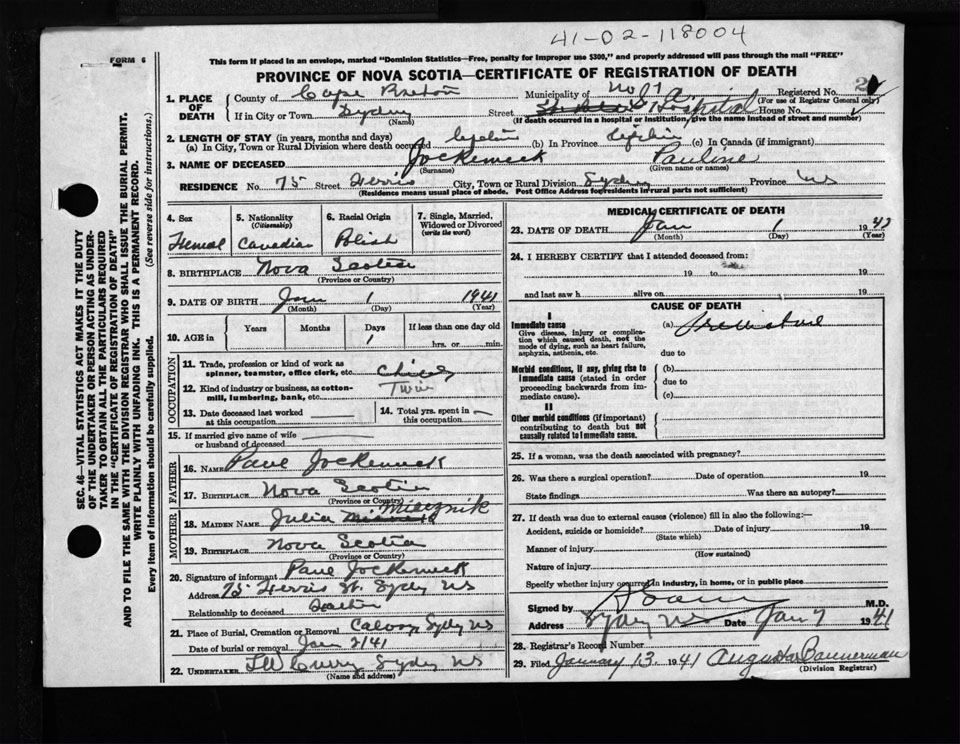 41-02-118004
FORM 6
This form if placed in an envelope, marked "Dominion Statistics—Free, penalty for improper use $300," and properly addressed will pass through the mail "FREE"
PROVINCE OF NOVA SCOTIA—CERTIFICATE OF REGISTRATION OF DEATH
1. PLACE OF DEATH
County of Cape Breton Municipality of No 7 Registered No. 2
(For use of Registrar General only)
If in City or Town Sydney (Name) Street Hospital House No.
(If death occurred in a hospital or institution, give the name instead of street and number)
2. LENGTH OF STAY (in years, months and days)
(a) In City, Town or Rural Division where death occurred lifetime (b) In Province lifetime (c) In Canada (if immigrant)
3. NAME OF DECEASED Pauline
(Surname) (Given name or names)
RESIDENCE No. 75 Street Ferris City, Town or Rural Division Sydney Province NS
(Residence means usual place of abode. Post Office Address for residents in rural parts not sufficient)
4. Sex Femal
5. Nationality (Citizenship) Canadian
6. Racial Origin Polish
7. Single, Married, Widowed or Divorced (write the word)
8. BIRTHPLACE Nova Scotia
(Province or Country)
9. DATE OF BIRTH Jan 1 1941
(Month) (Day) (Year)
10. AGE in Years Months Days If less than one day old
1 hrs. or min.
OCCUPATION
11. Trade, profession or kind of work as spinner, teamster, office clerk, etc. Child
12. Kind of industry or business, as cotton-mill, lumbering, bank, etc. Twin
13. Date deceased last worked at this occupation
14. Total yrs. spent in this occupation
15. If married give name of wife or husband of deceased
FATHER
16. NAME Paul
17. BIRTHPLACE Nova Scotia
(Province or Country)
MOTHER
18. MAIDEN NAME Julia Miecznik
19. BIRTHPLACE Nova Scotia
(Province or Country)
20. Signature of informant Paul
Address 75 Ferris St. Sydney NS
Relationship to deceased Father
21. Place of Burial, Cremation or Removal Calvary Sydney NS
Date of burial or removal Jan 2/41
22. UNDERTAKER Curry Sydney NS
(Name and address)
MEDICAL CERTIFICATE OF DEATH
23. DATE OF DEATH Jan 1 19
(Month) (Day) (Year)
24. I HEREBY CERTIFY that I attended deceased from:
19 to 19
and last saw h alive on 19
CAUSE OF DEATH
I
Immediate cause
Give disease, injury or complication which caused death, not the mode of dying, such as heart failure, asphyxia, asthenia, etc.
(a) Premature
due to
Morbid conditions, if any, giving rise to immediate cause (stated in order proceeding backwards from immediate cause).
(b)
due to
(c)
II
Other morbid conditions (if important) contributing to death but not causally related to immediate cause.
25. If a woman, was the death associated with pregnancy?
26. Was there a surgical operation? Date of operation 19
State findings Was there an autopsy?
27. If death was due to external causes (violence) fill in also the following:—
Accident, suicide or homicide? Date of injury 19
(State which)
Manner of injury
(How sustained)
Nature of injury
Specify whether injury occurred in industry, in home, or in public place
Signed by M.D.
Address Sydney NS Date Jan 7 1941
28. Registrar's Record Number
29. Filed January 13 1941 Augusta Bannerman
(Division Registrar)
SEC. 46—VITAL STATISTICS ACT MAKES IT THE DUTY
OF THE UNDERTAKER OR PERSON ACTING AS UNDER-
TAKER TO OBTAIN ALL THE PARTICULARS REQUIRED
IN THE "CERTIFICATE OF REGISTRATION OF DEATH"
AND TO FILE THE SAME WITH THE DIVISION REGISTRAR WHO SHALL ISSUE THE BURIAL PERMIT.
WRITE PLAINLY WITH UNFADING INK. THIS IS A PERMANENT RECORD.
Every item of information should be carefully supplied. (See reverse side for instructions.)